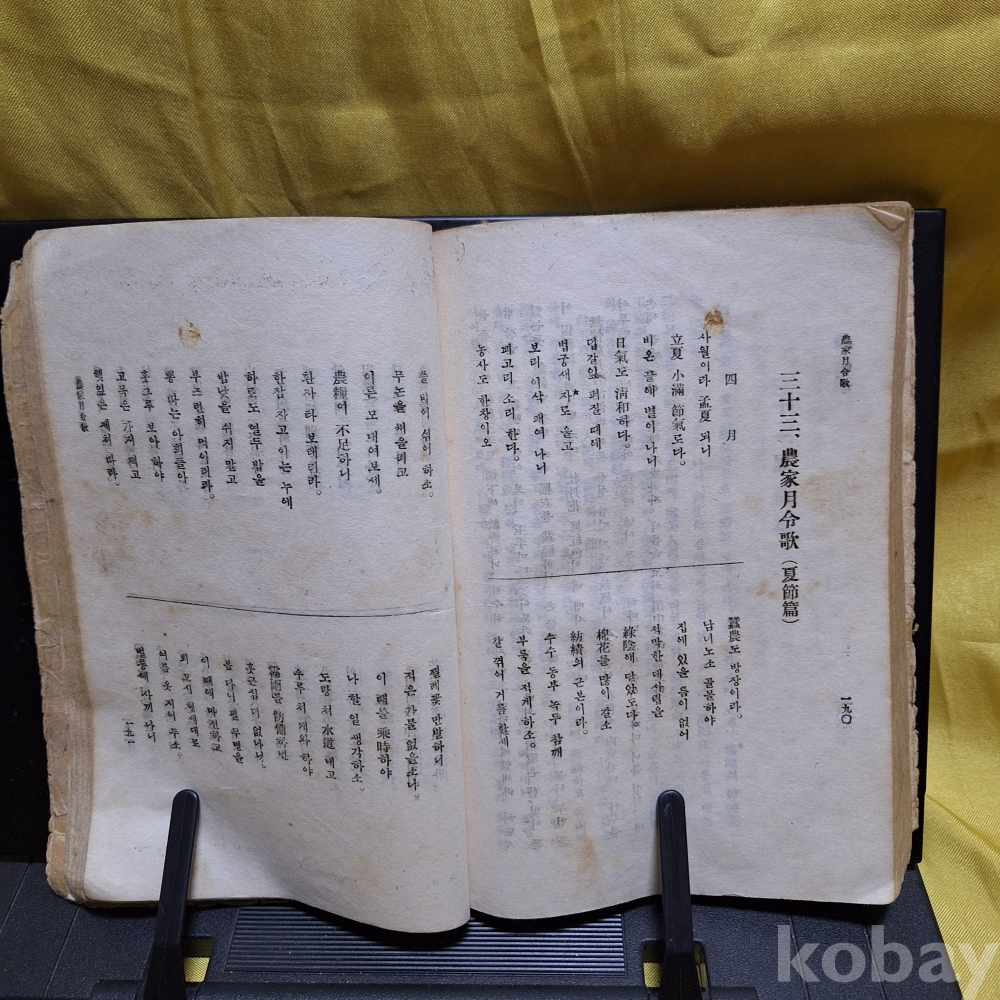 農家月令歌
三十三、農家月令歌 (夏節篇)
四月
사월이라 孟夏 되니
立夏 小滿 節氣도다.
비온 끝에 볕이 나니
日氣도 淸和하다.
떡갈잎 퍼질 때에
뻐꾹새 자도 울고
보리 이삭 패여 나니
꾀고리 소리 한다.
농사도 한창이오
蠶農도 방장이라.
남녀노소 골몰하야
집에 있을 틈이 없어
적막한 대사립을
綠陰에 닫았도다.
棉花를 많이 갈소
紡績의 근본이라.
수수 동부 녹두 참깨
부룩을 적게 하소.
갈 꺾어 거름할제
一九〇
풀 베어 섞어 하소.
무논을 써을이고
이른 모 내여보세.
農糧이 不足하니
환자 타 보태리라.
한잠 자고 이는 누에
하로도 열두 밥을
밤낮을 쉬지 말고
부즈런히 먹이리라.
뽕 따는 아희들아
훗그루 보아 하야
고목은 가지 찍고
햇잎은 제처 따라.
農家月令歌
찔레꽃 만발하니
적은 가물 없을소냐.
이 때를 乘時하야
나 할 일 생각하소.
도랑 처 水道 내고
우루 처 개와 하야
霖雨를 防備하면
훗근심 더 없나니.
봄 나이 필 무명을
이 때에 마전하고
뵈 모시 형세대로
여름 옷 지어 두소.
벌통에 사끼 나니
一九一
kobay